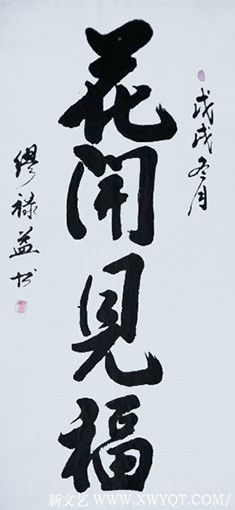 戊戌冬月
花開見福
缪禄益书
新文艺 WWW.XWYQT.COM/